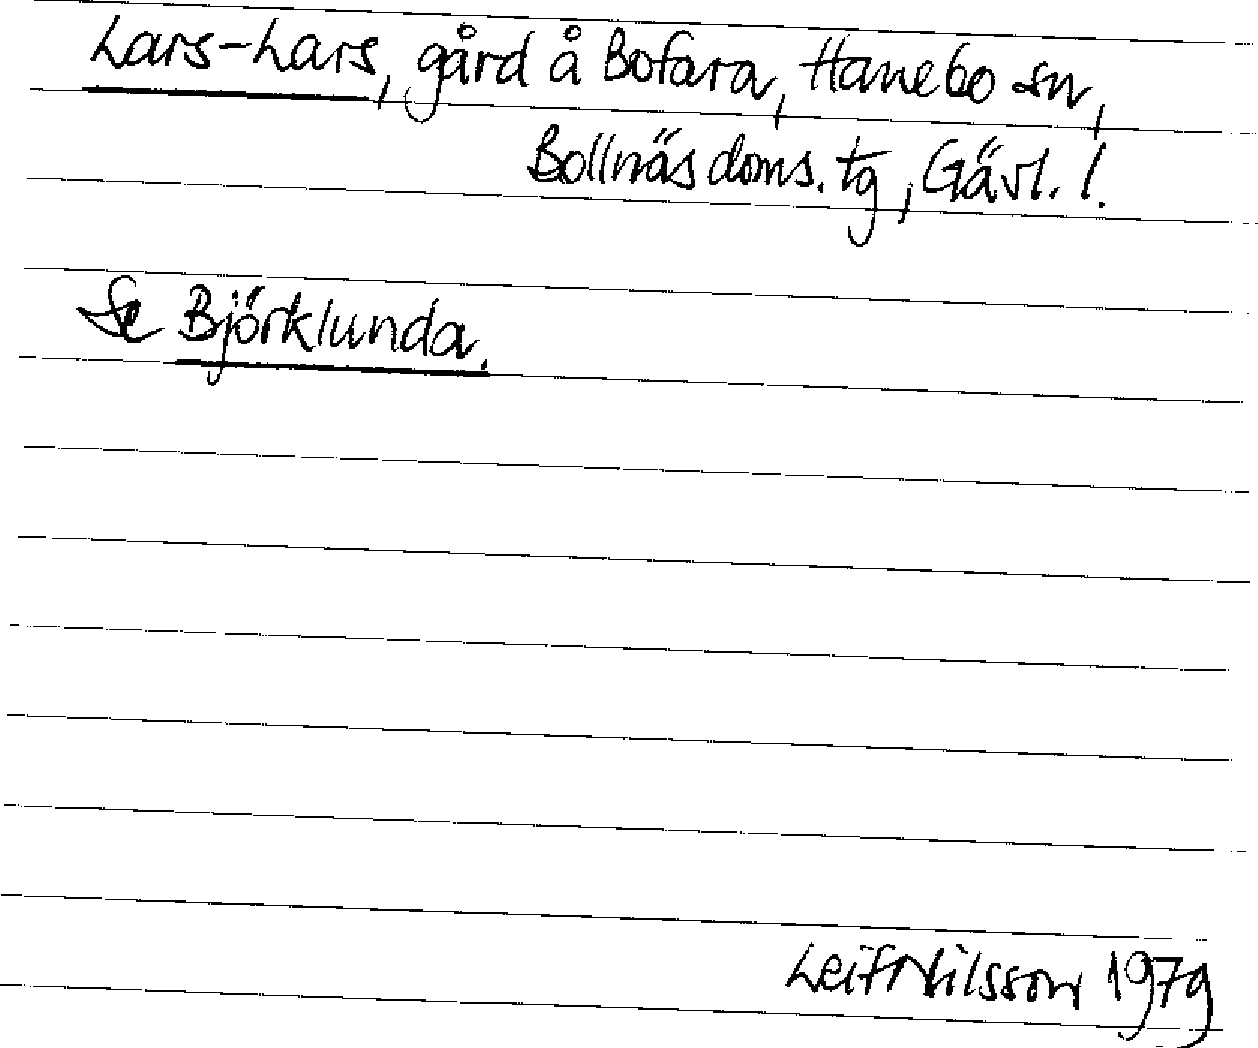 Lars-Lars, gård å Bofara, Hanebo sn,
Bollnäs doms. tg, Gävl. l.
Se Björklunda.
Leif Nilsson 1979